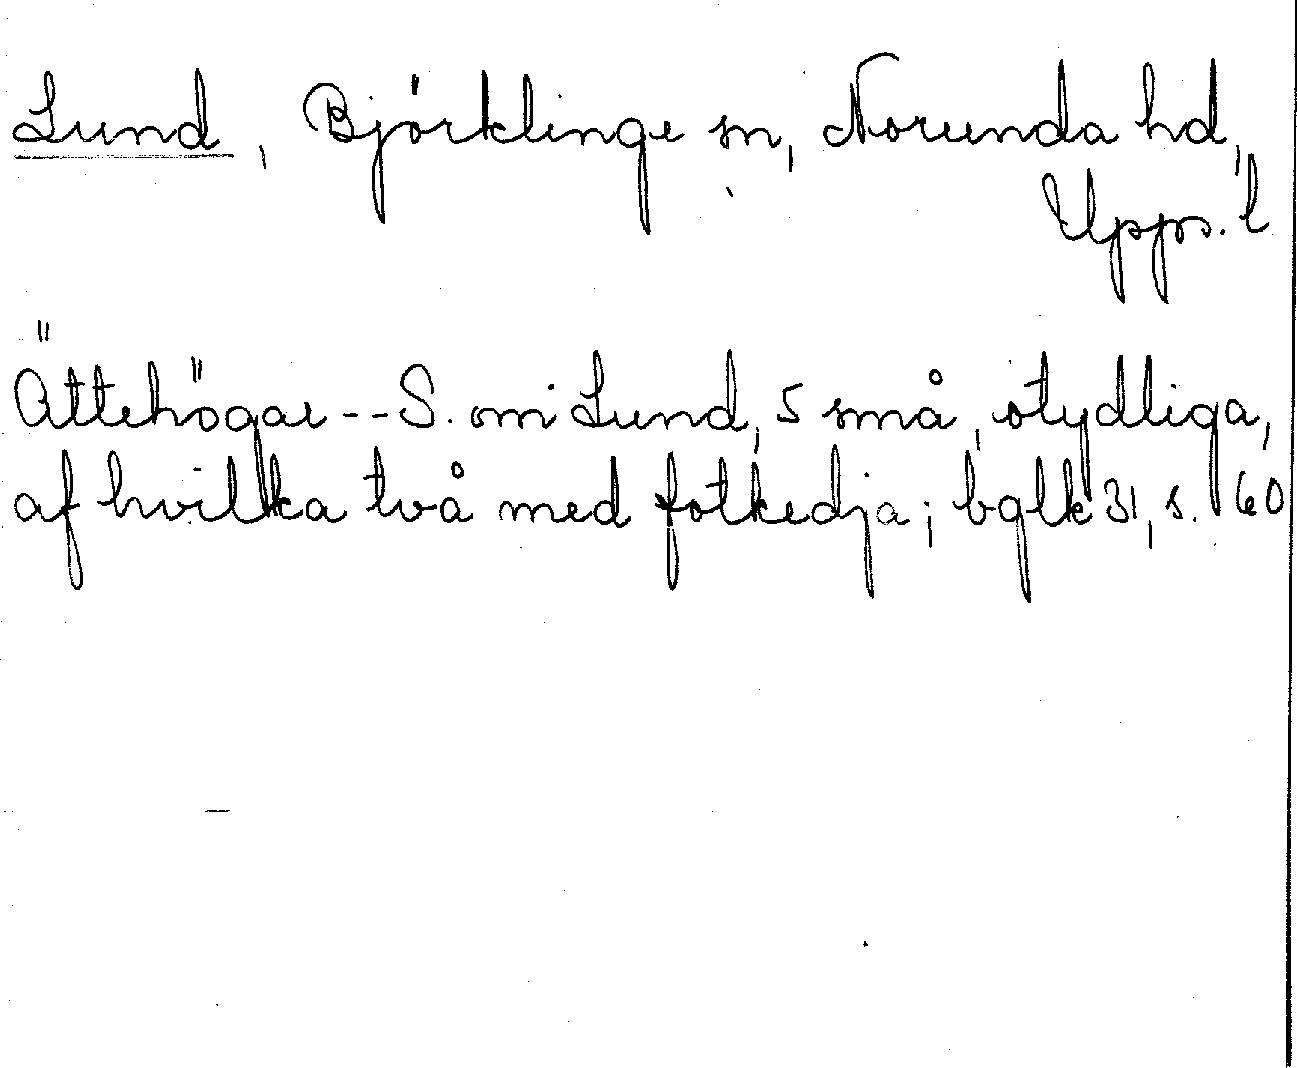 Lund, Björklinge sn, Norunda hd,
Upps. l
Ättehögar -- S. om Lund, 5 små, otydliga,
af hvilka två med fotkedja; bglk 31, s. 60